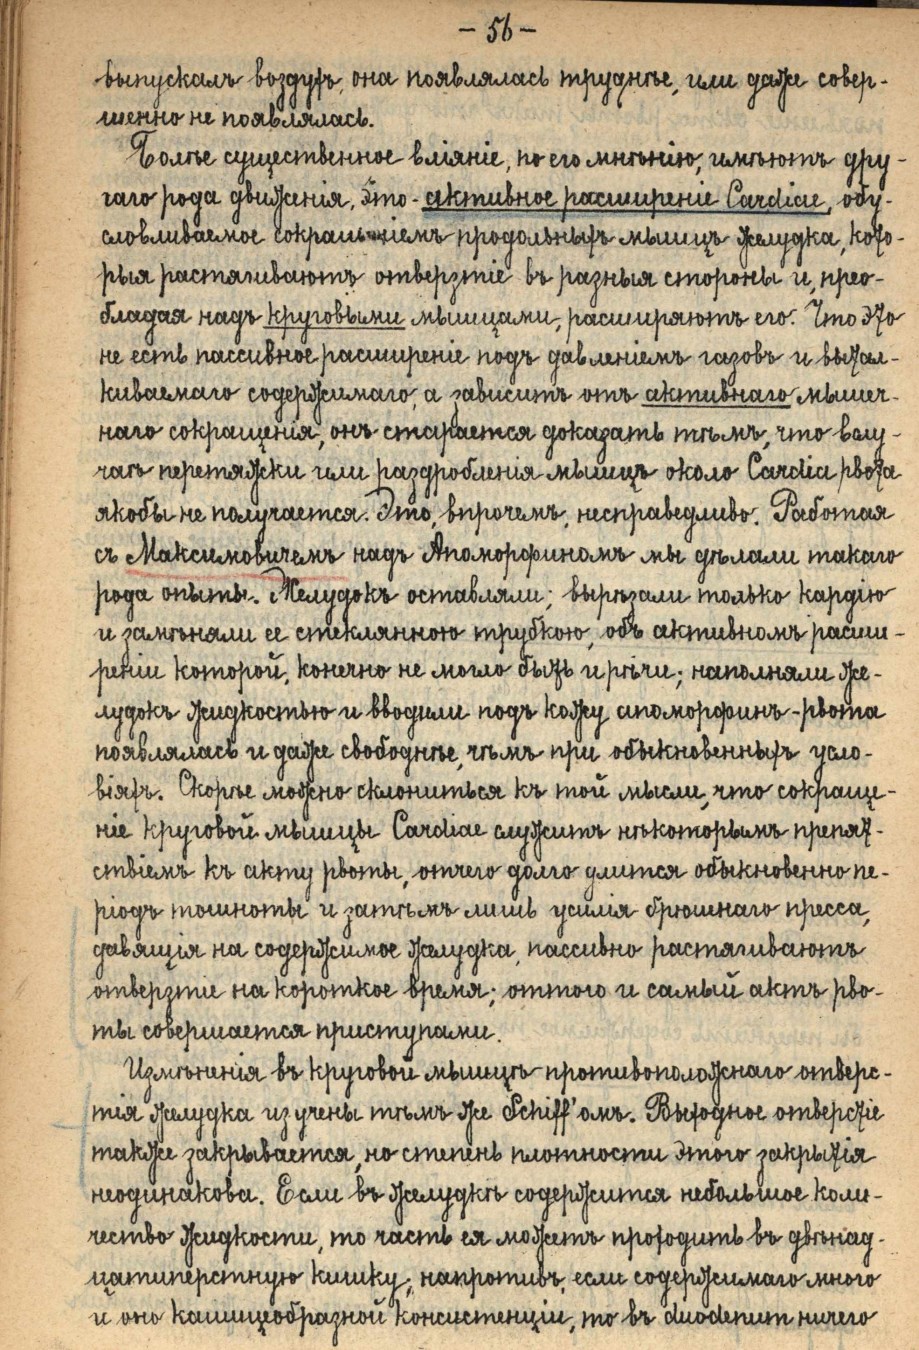 - 56 -
выпускалъ воздухъ, она появлялась труднѣе, или даже совер-
шенно не появлялась.
Болѣе существенное вліяніе, по его мнѣнію, имѣютъ дру-
гаго рода движенія, это - активное расширеніе Cardiae, обу-
словливаемое сокращеніемъ продольныхъ мышцъ желудка, кото-
рыя растягиваютъ отверзтіе въ разныя стороны и, прео-
бладая надъ круговыми мышцами, расширяютъ его. Что это
не есть пассивное расширеніе подъ давленіемъ газовъ и вытал-
киваемаго содержимаго, а зависитъ отъ активнаго мышеч-
наго сокращенія, онъ старается доказать тѣмъ, что въ слу-
чаѣ перетяжки или раздробленія мышцъ около Cardia рвота
якобы не получается. Это, впрочемъ, несправедливо. Работая
съ Максимовичемъ надъ Апоморфиномъ мы дѣлали такаго
рода опыты. Желудокъ оставляли; вырѣзали только кардію
и замѣняли ее стеклянною трубкою, объ активномъ расши-
реніи которой, конечно не могло быть и рѣчи; наполняли же-
лудокъ жидкостью и вводили подъ кожу апоморфинъ - рвота
появлялась и даже свободнѣе, чѣмъ при обыкновенныхъ усло-
віяхъ. Скорѣе можно склониться къ той мысли, что сокраще-
ніе круговой мышцы Cardiae служитъ нѣкоторымъ препят-
ствіемъ къ акту рвоты, отчего долго длится обыкновенно пе-
ріодъ тошноты и затѣмъ лишь усилія брюшнаго пресса,
давящія на содержимое желудка, пассивно растягиваютъ
отверзтіе на короткое время; оттого и самый актъ рво-
ты совершается приступами.
Измѣненія въ круговой мышцѣ противоположнаго отверс-
тія желудка изучены тѣмъ же Schiff'омъ. Выходное отверстіе
также закрывается, но степень плотности этого закрытія
неодинакова. Если въ желудкѣ содержится небольшое коли-
чество жидкости, то часть ея можетъ проходить въ двѣнад-
цатиперстную кишку; напротивъ, если содержимаго много
и оно кашицеобразной консистенціи, то въ duodenum ничего